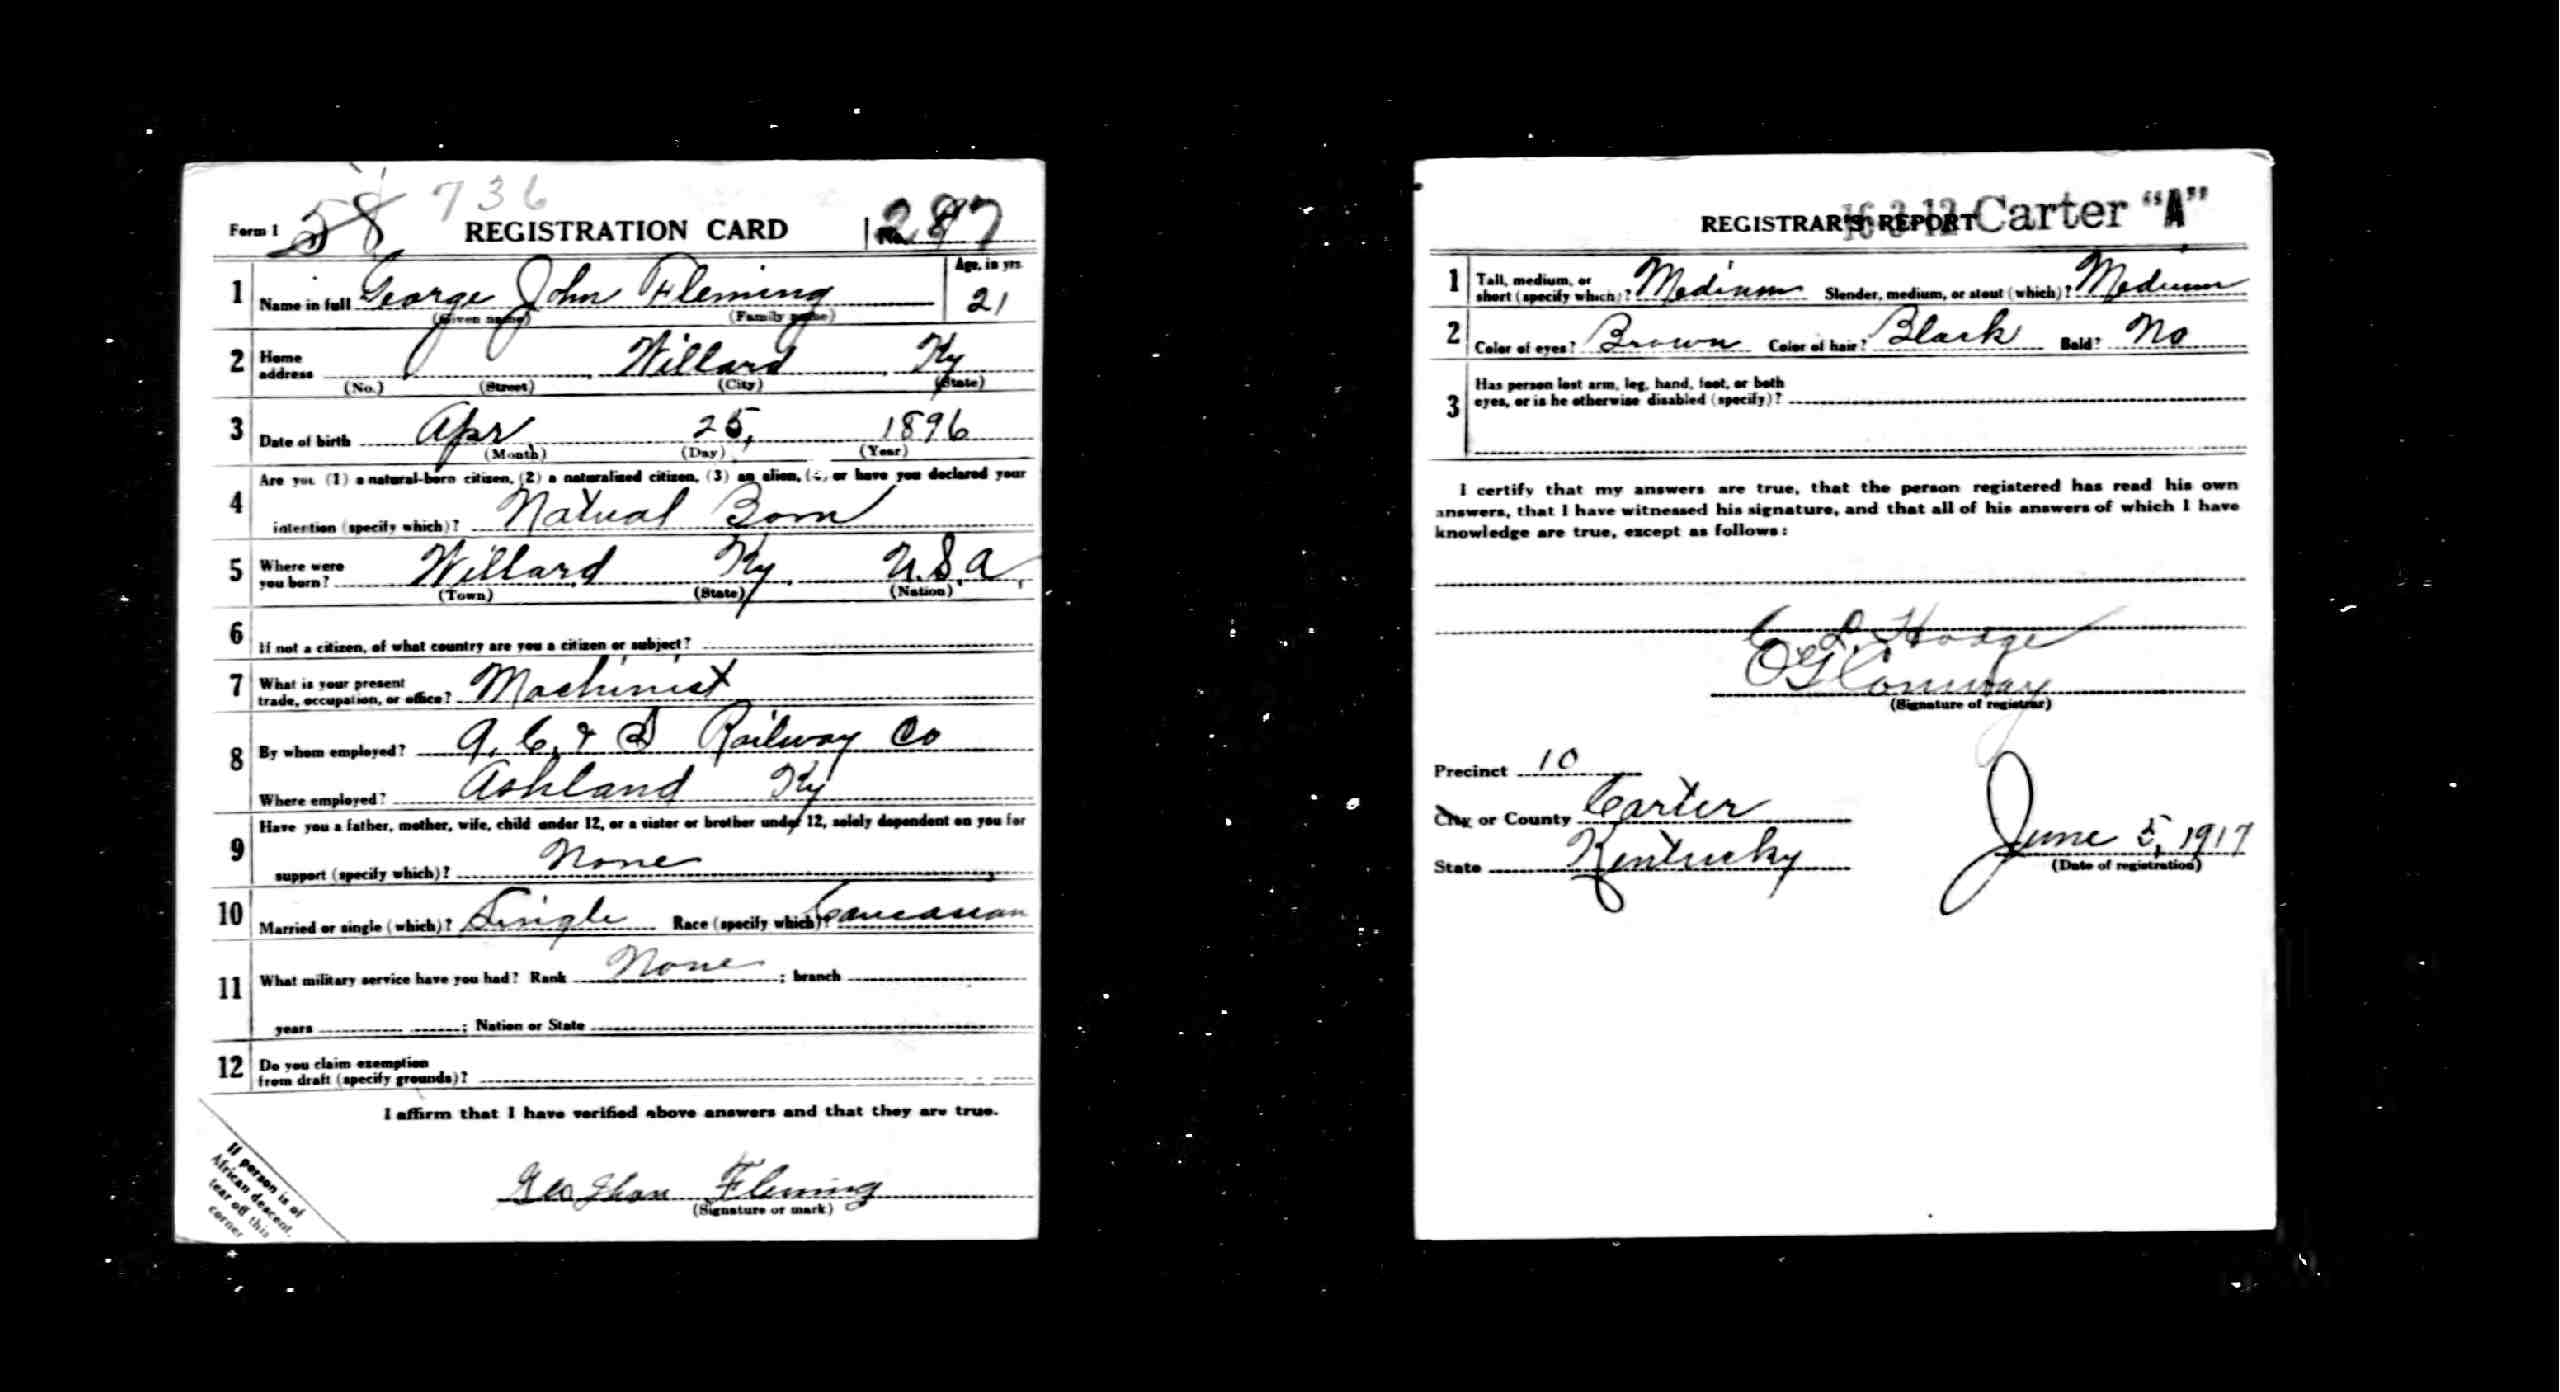 736
Form 1 58 REGISTRATION CARD No. 287
1 Name in full George John Fleming Age, in yrs. 21
(Given name) (Family name)
2 Home address Willard Ky
(No.) (Street) (City) (State)
3 Date of birth Apr 25, 1896
(Month) (Day) (Year)
4 Are you (1) a natural-born citizen, (2) a naturalized citizen, (3) an alien, (4) or have you declared your
intention (specify which)? Natual Born
5 Where were you born? Willard Ky. U.S.A,
(Town) (State) (Nation)
6 If not a citizen, of what country are you a citizen or subject?
7 What is your present trade, occupation, or office? Machinist
8 By whom employed? A, C, & S Railway Co
Where employed? Ashland Ky
9 Have you a father, mother, wife, child under 12, or a sister or brother under 12, solely dependent on you for
support (specify which)? None
10 Married or single (which)? Single Race (specify which)? Caucasian
11 What military service have you had? Rank None ; branch
years ; Nation or State
12 Do you claim exemption
from draft (specify grounds)?
I affirm that I have verified above answers and that they are true.
Geo Jhon Fleming
(Signature or mark)
If person is of
African descent,
tear off this
corner
REGISTRAR'S REPORT 16-3-12 Carter "A"
1 Tall, medium, or
short (specify which)? Medium Slender, medium, or stout (which)? Medium
2 Color of eyes? Brown Color of hair? Black Bald? No
3 Has person lost arm, leg, hand, foot, or both
eyes, or is he otherwise disabled (specify)?
I certify that my answers are true, that the person registered has read his own
answers, that I have witnessed his signature, and that all of his answers of which I have
knowledge are true, except as follows:
C. L. Hodge
O G Conway
(Signature of registrar)
Precinct 10
City or County Carter
State Kentucky
June 5, 1917
(Date of registration)